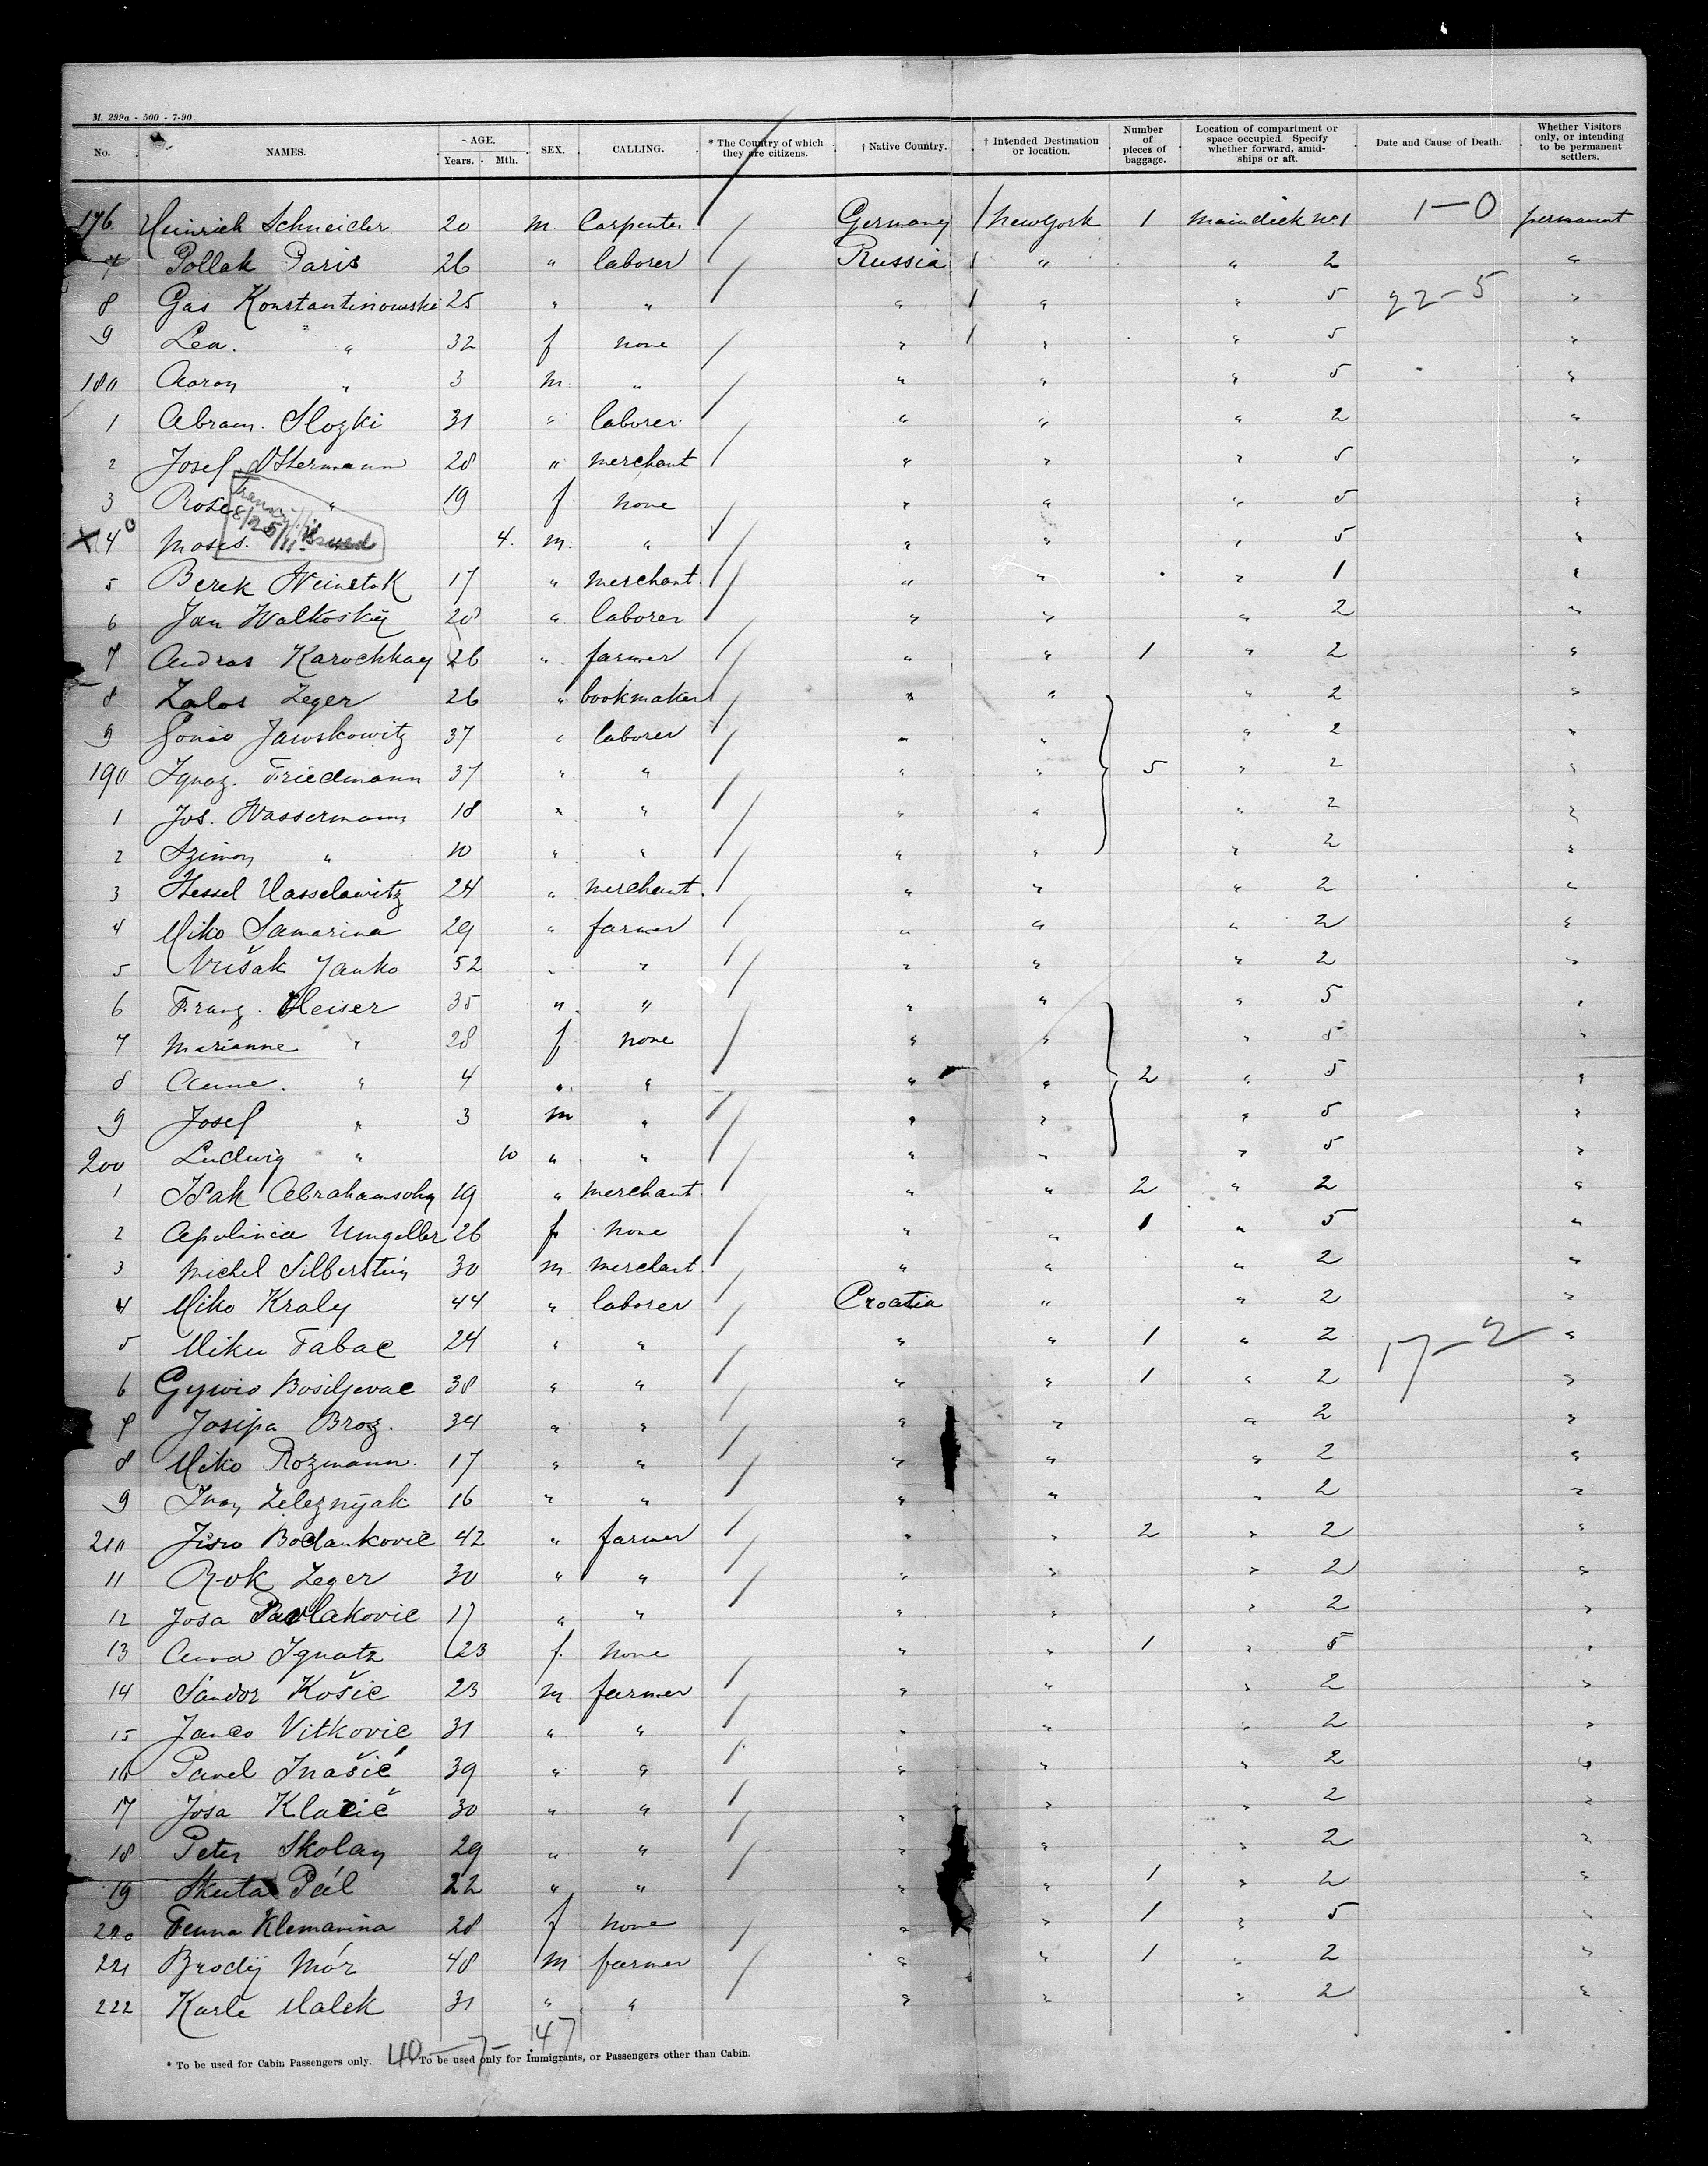 M. 299a - 500 - 7-90.
No. NAMES. AGE. Years. Mth. SEX. CALLING. * The Country of which they are citizens. † Native Country. † Intended Destination or location. Number of pieces of baggage. Location of compartment or space occupied. Specify whether forward, amid-ships or aft. Date and Cause of Death. Whether Visitors only, or intending to be permanent settlers.
176. Heinrich Schneider. 20 m. Carpenter Germany New York 1 Maindeck No 1 1-0 permanent
7 Pollak Paris 26 " laborer Russia " " 2 "
8 Gas Konstantinowski 25 " " " " " 5 22-5 "
9 Lea. " 32 f none " " " 5 "
180 Aaron " 3 m. " " " " 5 "
1 Abram. Slozki 31 " laborer " " " 2 "
2 Josef Ostermann 28 " merchant " " " 5 "
3 Rose " 19 f none " " " 5 "
X 4 Moses. " 4. m. " " " " 5 "
8/25/11 Issued
5 Berek Weinstok 17 " merchant. " " " 1 "
6 Jan Walkoskij 28 " laborer " " " 2 "
7 Andras Karochkay 26 " farmer " " 1 " 2 "
8 Zalos Zeger 26 " bookmaker " " " 2 "
9 Jawskowitz 37 " laborer " " " 2 "
190 Ignaz. Friedmann 37 " " " " 5 " 2 "
1 Jos. Wassermann 18 " " " " " 2 "
2 Szimon " 10 " " " " " 2 "
3 Hessel Uasselawitz 24 " merchant. " " " 2 "
4 Miko Samarina 29 " farmer " " " 2 "
5 Vrišak Janko 52 " " " " " 2 "
6 Franz. Heiser 35 " " " " " 5 "
7 Marianne " 28 f none " " " 5 "
8 Anne. " 4 " " " " 2 " 5 "
9 Josef " 3 m " " " " 5 "
200 Ludwig " 10 " " " " " 5 "
1 Isak Abrahamsohn 19 " merchant. " " 2 " 2 "
2 Apolinia Umgeller 26 f none " " 1 " 5 "
3 Michel Silberstein 30 m. merchant. " " " 2 "
4 Miko Kraly 44 " laborer Croatia " " 2 "
5 Miku Fabac 24 " " " " 1 " 2 17-2 "
6 Gywio Bosiljevac 38 " " " " 1 " 2 "
7 Josipa Broz. 34 " " " " " 2 "
8 Miko Rozmann. 17 " " " " " 2 "
9 Ivan Zeleznijak 16 " " " " " 2 "
210 Bodankovic 42 " farmer " " 2 " 2 "
11 Rok Zeger 30 " " " " " 2 "
12 Josa Pavlakovic 17 " " " " " 2 "
13 Anna Ignatz 23 f. none " " 1 " 5 "
14 Sandor Košic 23 m farmer " " " 2 "
15 Janco Vitkovic 31 " " " " " 2 "
16 Pavel Inašić 39 " " " " " 2 "
17 Josa Klacič 30 " " " " " 2 "
18 Peter Skolan 29 " " " " " 2 "
19 Skuta Pál 22 " " " " 1 " 2 "
220 Fenna Klemanina 28 f none " " 1 " 5 "
221 Brodij Mór 48 m farmer " " 1 " 2 "
222 Karle Malek 31 " " " " " 2 "
47
40-7-
* To be used for Cabin Passengers only. † To be used only for Immigrants, or Passengers other than Cabin.